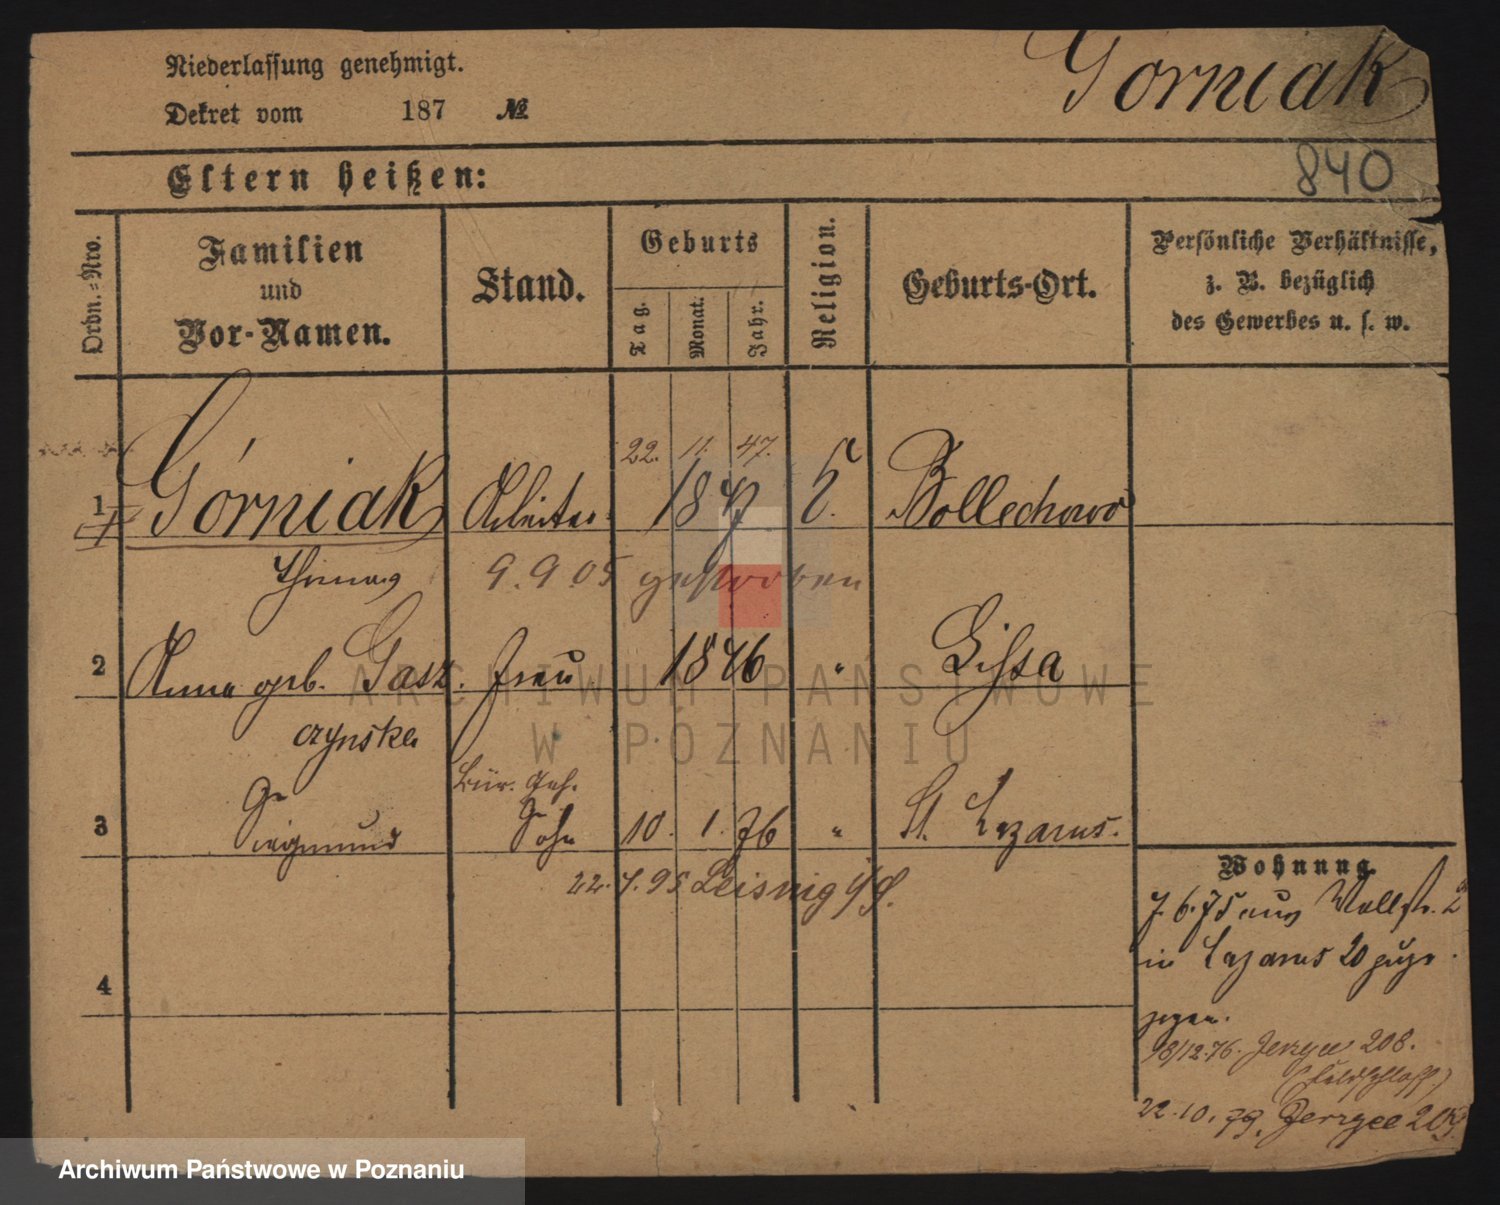 Niederlassung genehmigt.
Górniak
Dekret vom 187 №
840
Eltern heißen:
Ordn.=Nro.
Familien
und
Vor-Namen.
Stand.
Geburts
Tag.
Monat.
Jahr.
Religion.
Geburts-Ort.
Persönliche Verhältnisse,
z. B. bezüglich
des Gewerbes u. s. w.
22. 11. 47.
1 Górniak Arbeiter 1847 Bollechowo
Thomas 9.9.05 gestorben
2 Anna geb. Gasz. Frau 1846 " Lissa
czynska
3 Siegmund Sohn 10. 1. 76 " St. Lazarus.
22. 7. 95 Leisnig
Wohnung.
7.6.75 aus Wallstr. 2
in Lazarus 20 zuge
zogen.
18/12.76. Jerzyce 208.
(Feldschloss)
22.10.79. Jerzyce
4
ARCHIWUM PAŃSTWOWE
W POZNANIU
Archiwum Państwowe w Poznaniu